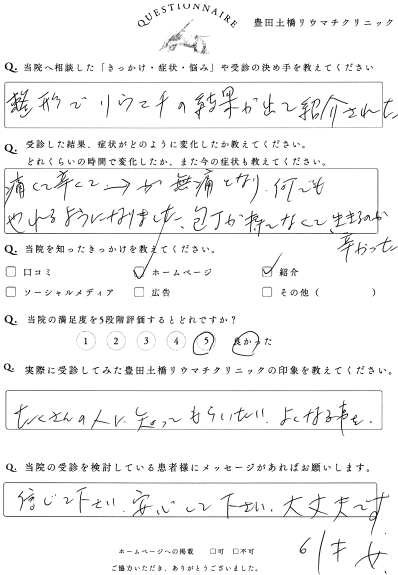 QUESTIONNAIRE
豊田土橋リウマチクリニック
Q. 当院へ相談した「きっかけ・症状・悩み」や受診の決め手を教えてください
整形でリウマチの結果が出て紹介された
Q. 受診した結果、症状がどのように変化したか教えてください。
どれくらいの時間で変化したか、また今の症状も教えてください。
痛くて辛くて→が無痛となり、何でも
やれるようになりました、包丁が持てなくて、生きるのが
辛かった
Q. 当院を知ったきっかけを教えてください。
口コミ ホームページ 紹介
ソーシャルメディア 広告 その他（ ）
Q. 当院の満足度を5段階評価するとどれですか？
1 2 3 4 5 良かった
Q. 実際に受診してみた豊田土橋リウマチクリニックの印象を教えてください。
たくさんの人に知ってもらいたい、よくなる事を、
Q. 当院の受診を検討している患者様にメッセージがあればお願いします。
信じて下さい、安心して下さい、大丈夫です
61才 女
ホームページへの掲載 □可 □不可
ご協力いただき、ありがとうございました。